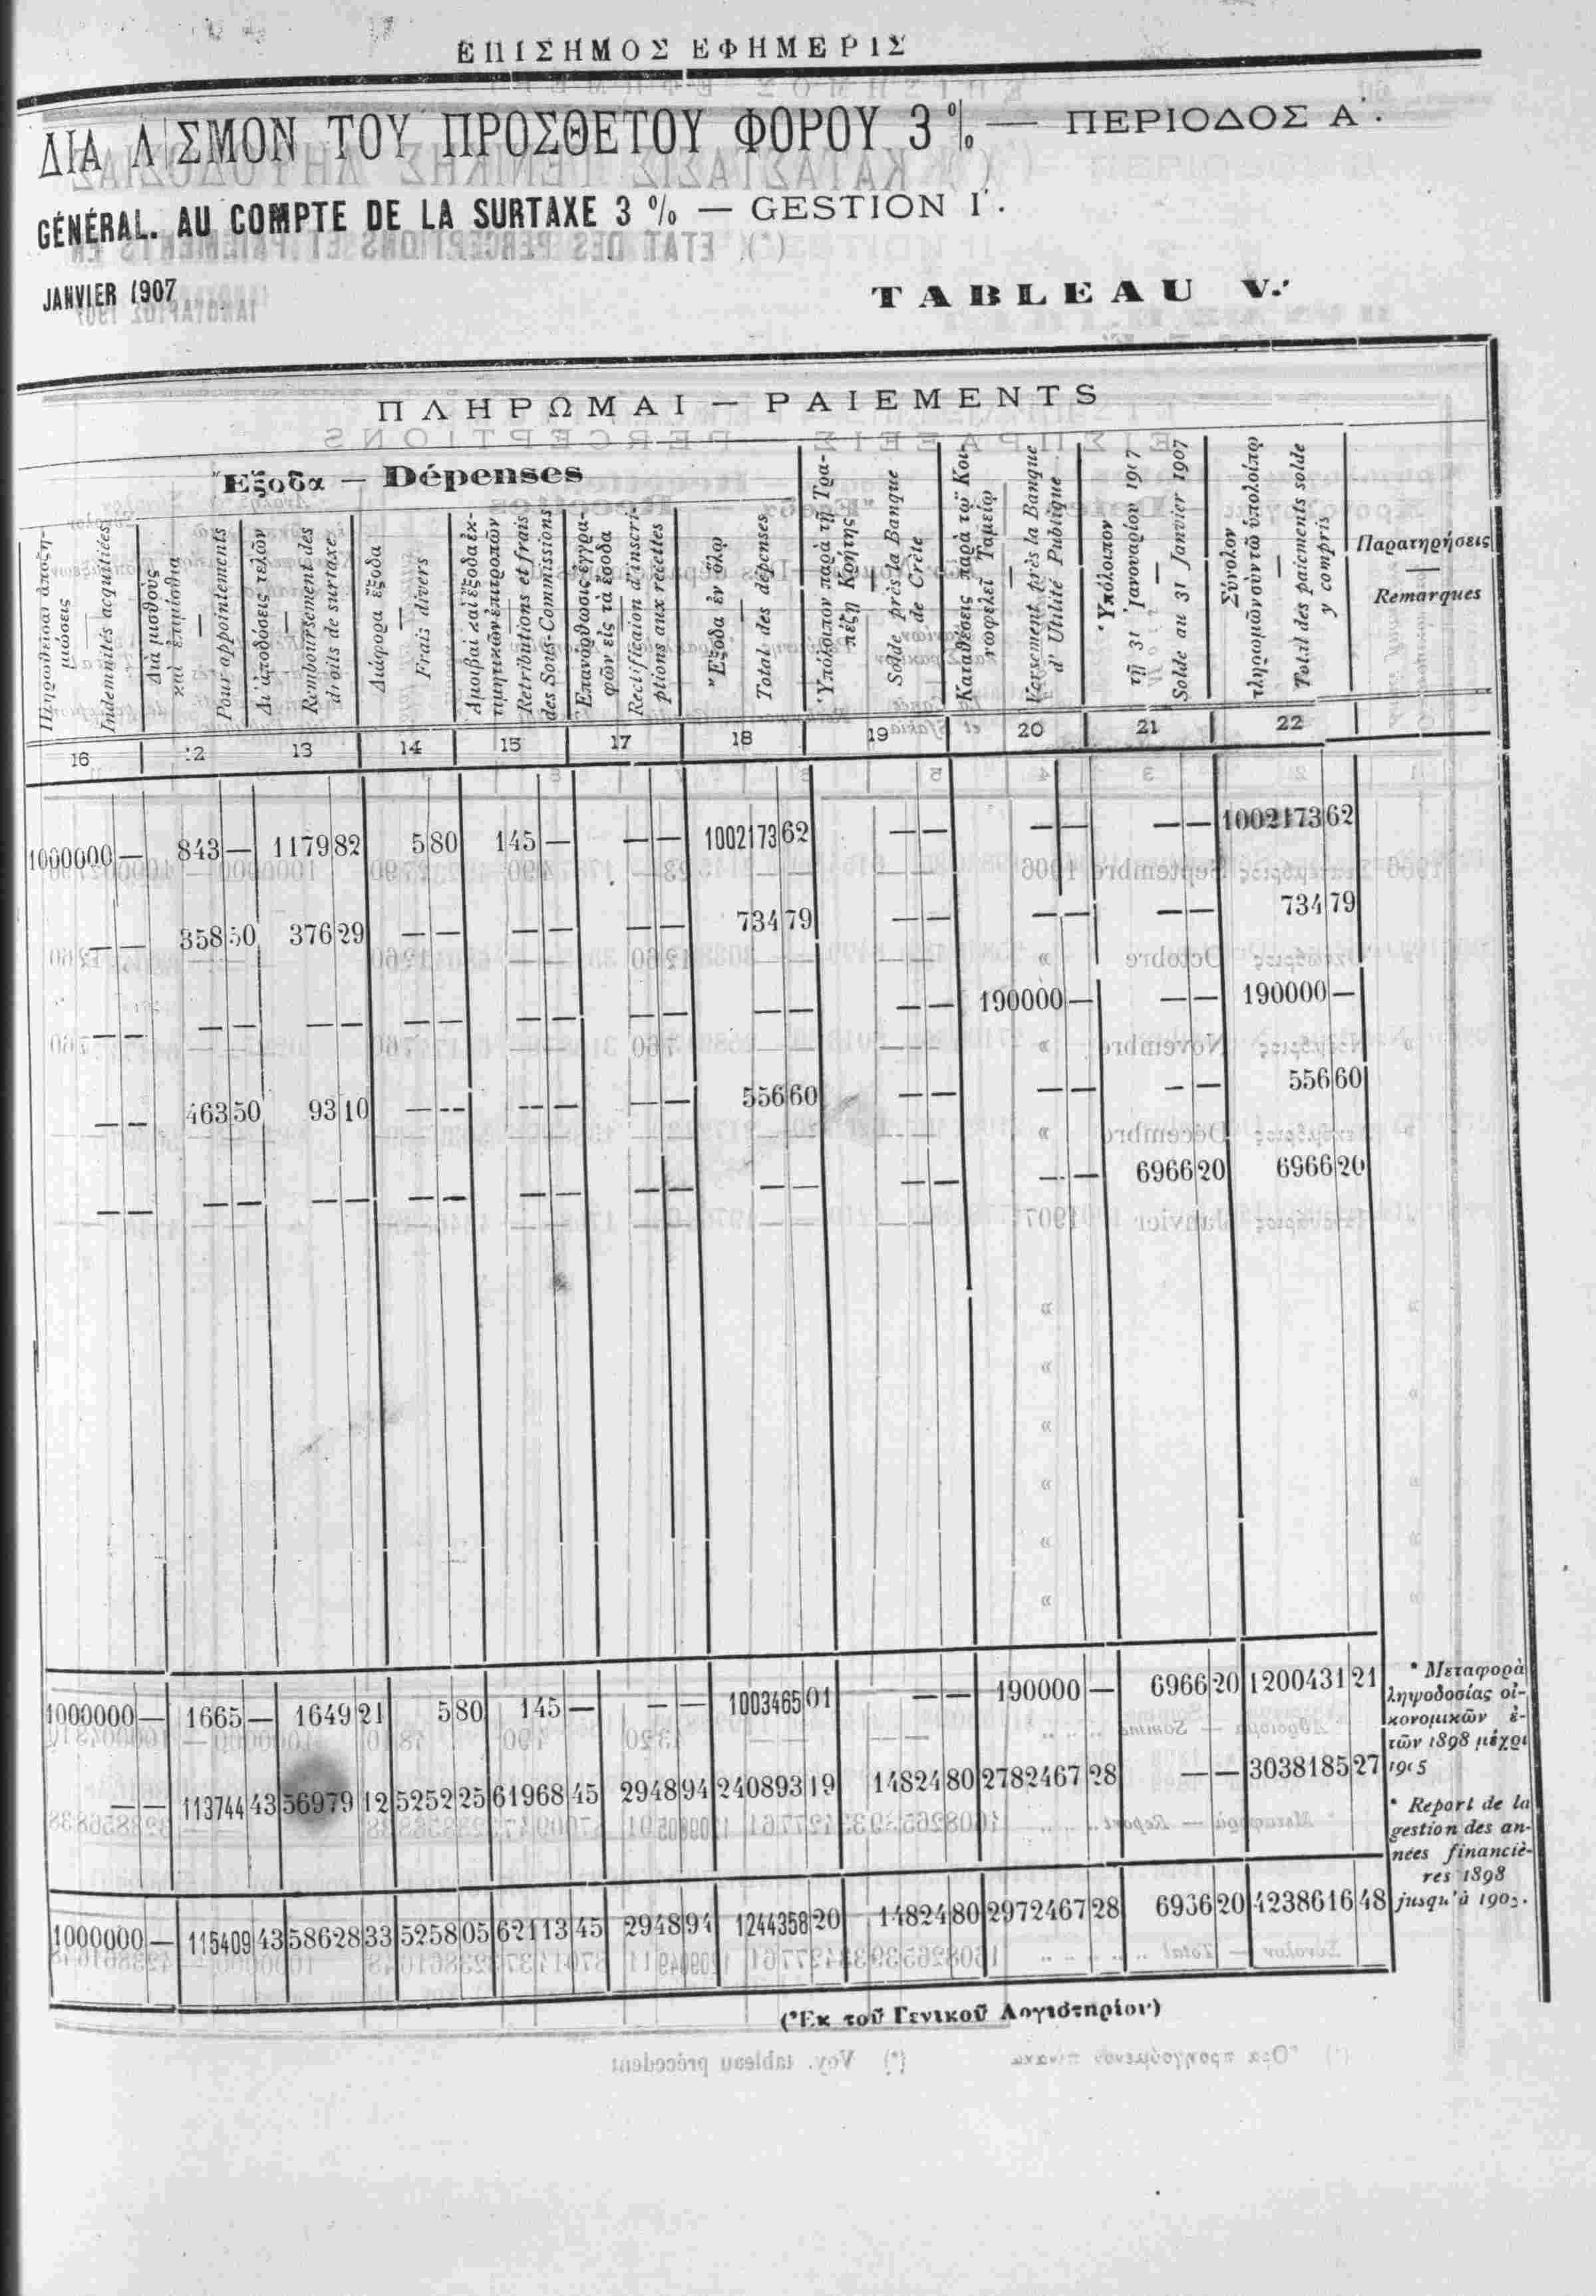 ΕΠΙΣΗΜΟΣ ΕΦΗΜΕΡΙΣ
ΔΙΑ Λ]ΣΜΟΝ ΤΟΥ ΠΡΟΣΘΕΤΟΥ ΦΟΡΟΥ 3 % — ΠΕΡΙΟΔΟΣ Α΄.
GÉNÉRAL. AU COMPTE DE LA SURTAXE 3 % — GESTION I΄.
JANVIER 1907
TABLEAU V.
ΠΛΗΡΩΜΑΙ — PAIEMENTS
Ἔξοδα — Dépenses
Πληρωθεῖσαι ἀποζημιώσεις — Indemnités acquittées
Διὰ μισθοὺς καὶ ἐπιμίσθια — Pour appointements
Δι' ἀποδόσεις τελῶν — Remboursement des droits de surtaxe
Διάφορα ἔξοδα — Frais divers
Ἀμοιβαὶ καὶ ἔξοδα ἐκτιμητικῶν ἐπιτροπῶν
Retributions et frais des Sous-Commissions
Ἐπανόρθωσις ἐγγραφῶν εἰς τὰ ἔσοδα
Rectificaion d'inscriptions aux recettes
Ἔξοδα ἐν ὅλῳ — Total des dépenses
Ὑπόλοιπον παρὰ τῇ Τραπέζῃ Κρήτης — Solde près la Banque de Crète
Καταθέσεις παρὰ τῷ Κοινωφελεῖ Ταμείῳ — Versement près la Banque d' Utilité Publique
Ὑπόλοιπον τῇ 31 Ἰανουαρίου 1907 — Solde au 31 Janvier 1907
Σύνολον πληρωμῶν σὺν τῷ ὑπολοίπῳ — Total des paiements solde y compris
Παρατηρήσεις — Remarques
16 12 13 14 15 17 18 19 20 21 22
1000000 — 843 — 1179 82 5 80 145 — — — 1002173 62 — — — — — — 1002173 62
— — 358 50 376 29 — — — — — — 734 79 — — — — — — 734 79
— — — — — — — — — — — — — — — — 190000 — — — 190000 —
— — 463 50 93 10 — — — — — — 556 60 — — — — — — 556 60
— — — — — — — — — — — — — — — — — — 6966 20 6966 20
1000000 — 1665 — 1649 21 5 80 145 — — — 1003465 01 — — 190000 — 6966 20 1200431 21
— — 113744 43 56979 12 5252 25 61968 45 2948 94 240893 19 14824 80 2782467 28 — — 3038185 27
1000000 — 115409 43 58628 33 5258 05 62113 45 2948 94 1244358 20 14824 80 2972467 28 6966 20 4238616 48
* Μεταφορὰ
ληψοδοσίας οἰ-
κονομικῶν ἐ-
τῶν 1898 μέχρι
1905
* Report de la
gestion des an-
nées financiè-
res 1898
jusqu'à 1905.
(Ἐκ τοῦ Γενικοῦ Λογιστηρίου)